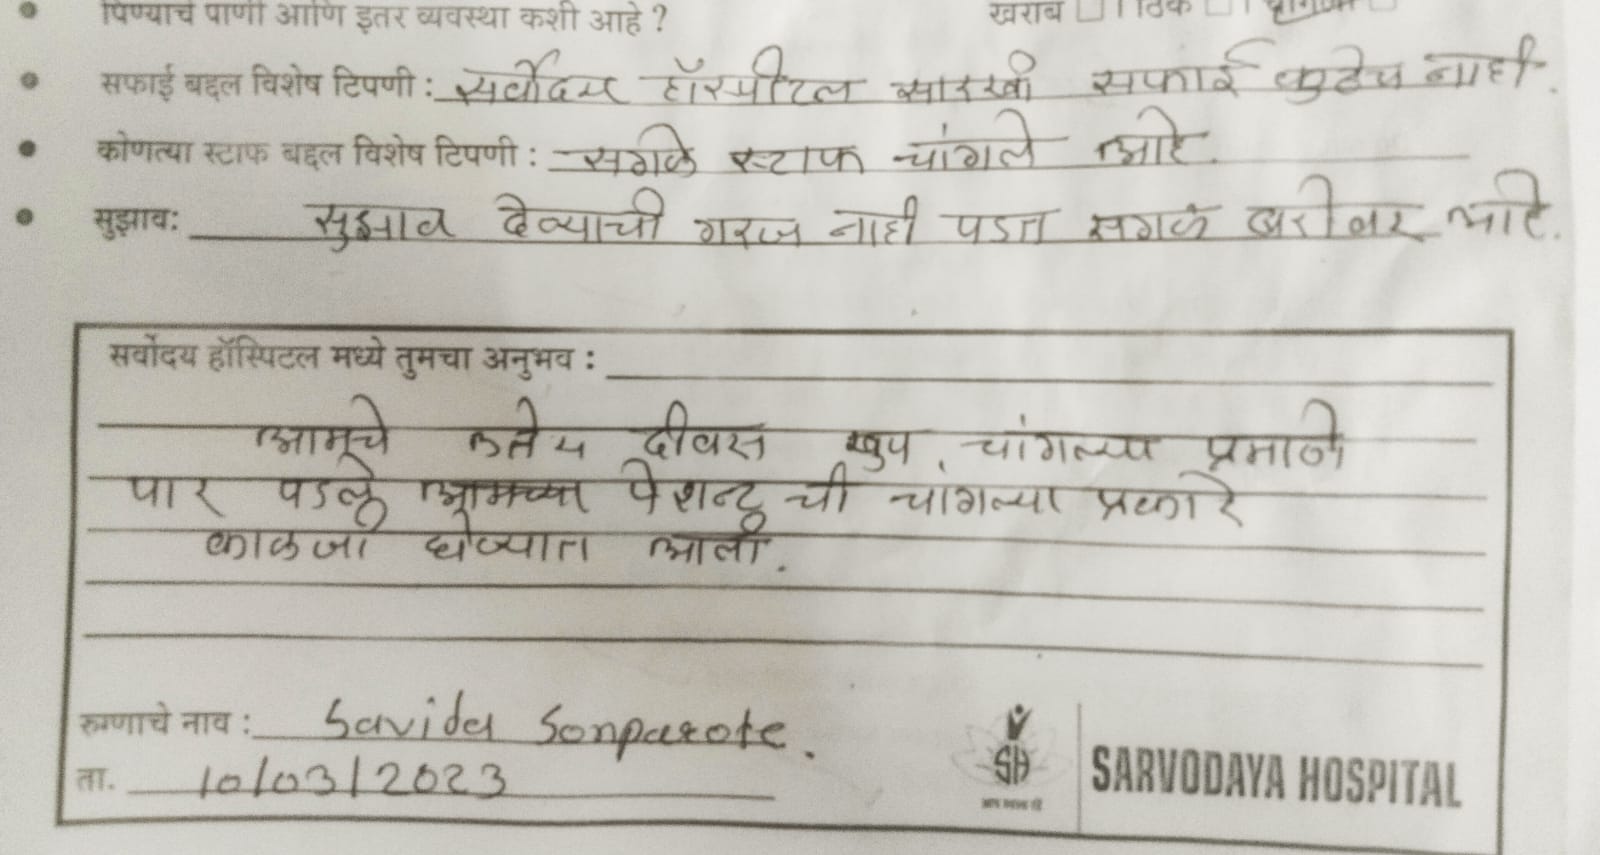 पिण्याचे पाणी आणि इतर व्यवस्था कशी आहे ? खराब ठिक
सफाई बद्दल विशेष टिपणी : सर्वोदय हॉस्पीटल सारखी सफाई कुठेच नाही.
कोणत्या स्टाफ बद्दल विशेष टिपणी : सगळे स्टाफ चांगले आहे.
सुझाव: सुझाव देण्याची गरज नाही पडत सगळं बरोबर आहे.
सर्वोदय हॉस्पिटल मध्ये तुमचा अनुभव :
आमचे दीवस खुप चांगल्या प्रमाणे
पार पडले आमच्या पेशन्ट ची चांगल्या प्रकारे
काळजी घेण्यात आली.
रुग्णाचे नाव : Savida Sonparote.
ता. 10/03/2023
SH
SARVODAYA HOSPITAL